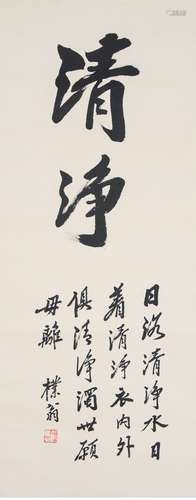 清淨
日浴清淨水日
着清淨衣內外
俱清淨濁世願
毋離 樸翁